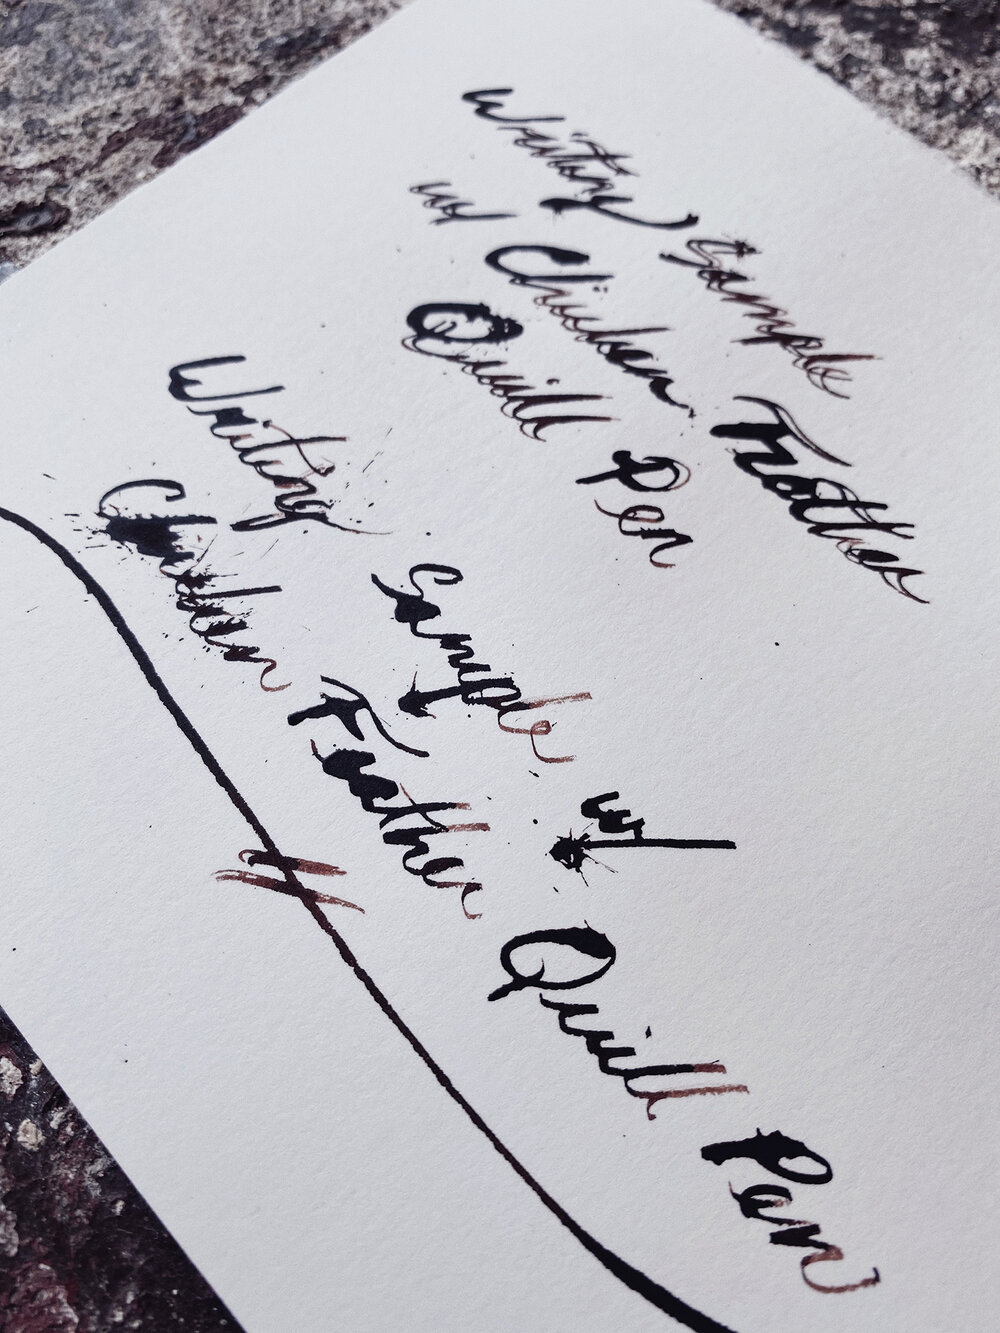 Writing Sample
w/ Chicken Feather
Quill Pen
Writing Sample w/
Chicken Feather Quill Pen